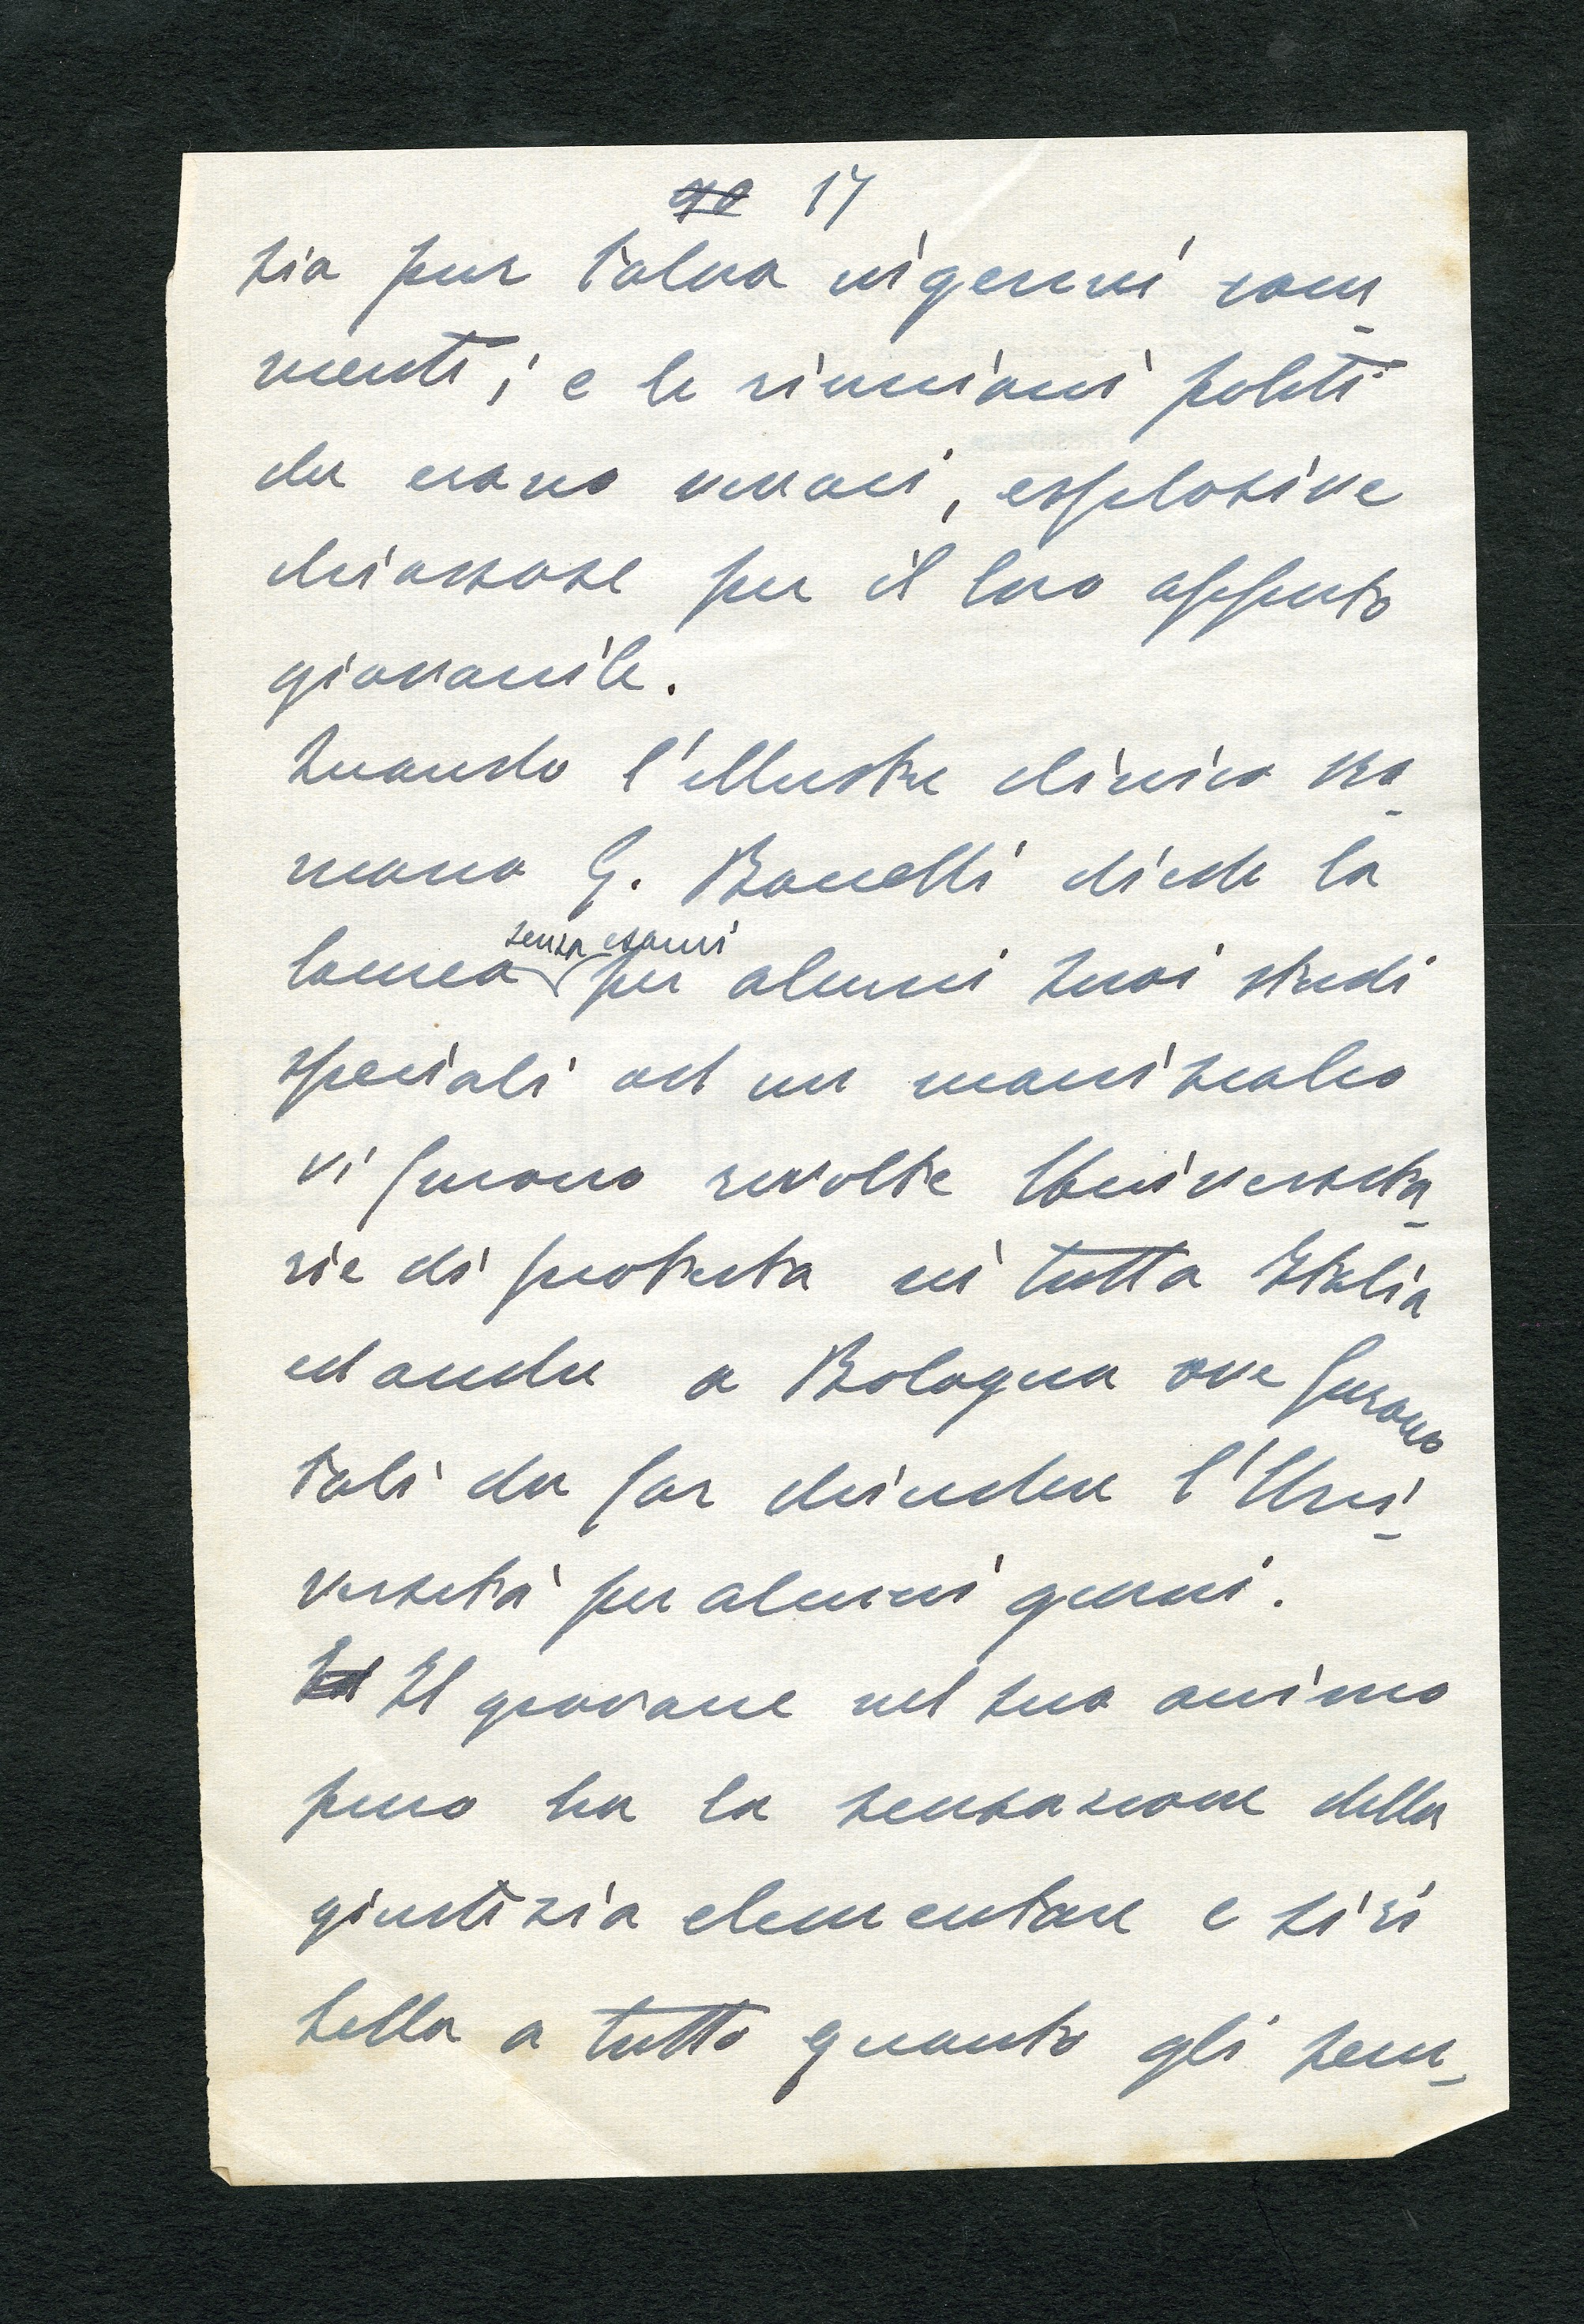 17
sia pur talva ingenui com-
menti; e le riunioni politi
che erano vivaci, esplosive
chiassose per il loro apporto
giovanile.
Quando l'illustre clinico ro-
mano G. Bacelli diede la
laurea senza esami per alcuni suoi studi
speciali ad un maniscalco
vi furono rivolte Universita-
rie di protesta in tutta Italia
ed anche a Bologna ove furono
tali da far chiudere l'Uni-
versità per alcuni giorni.
Il giovane nel suo animo
puro ha la sensazione della
giustizia elementare e si ri
bella a tutto quanto gli sem-